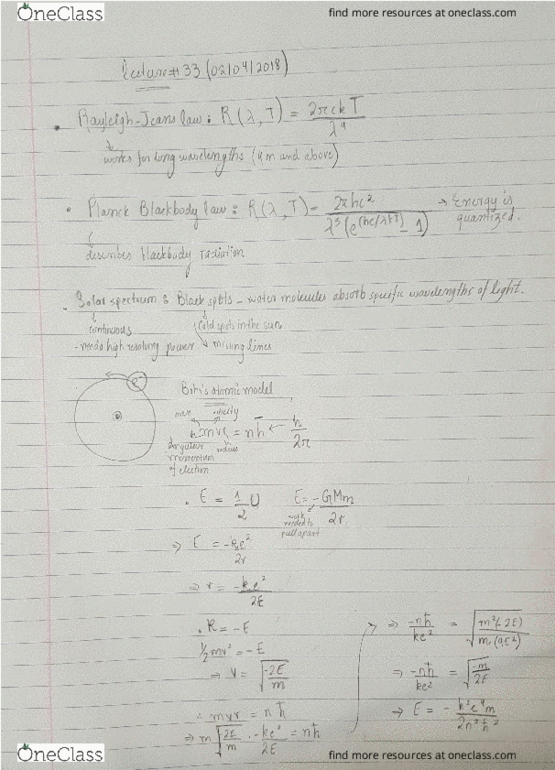 OneClass
find more resources at oneclass.com
Lecture #33 (02/04/2018)
• Rayleigh-Jeans law: R(λ, T) = 2πckT / λ⁴
works for long wavelengths (4m and above)
• Planck Blackbody law: R(λ, T) = 2πhc² / λ⁵(e^(hc/λkT) - 1) → Energy is quantized.
describes blackbody radiation
• Solar spectrum & Black spots - water molecules absorb specific wavelengths of light.
continuous
cold spots in the sun
- needs high resolving power
missing lines
e⁻
Bohr's atomic model
mass velocity
mvr = nħ ← h/2π
angular momentum of electron
radius
• E = 1/2 U
E = -GMm / 2r
work needed to pull apart
⇒ E = -ke² / 2r
⇒ r = -ke² / 2E
• K = -E
1/2 mv² = -E
⇒ v = √(-2E/m)
∴ mvr = nħ
⇒ m √(2E/m) · -ke²/2E = nħ
⇒ -nħ/ke² = √(m²(-2E) / m(4E²))
⇒ -nħ/ke² = √(-m/2E)
⇒ E = - k²e⁴m / 2n²ħ²
OneClass
find more resources at oneclass.com